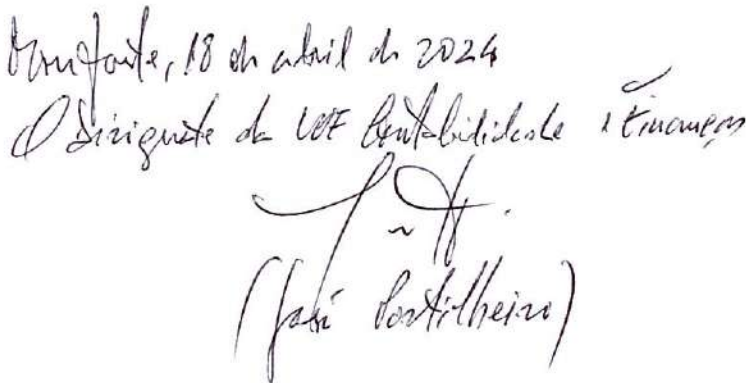 Monforte, 18 de abril de 2024
O Dirigente da UOF Contabilidade e Finanças
(José Portilheiro)